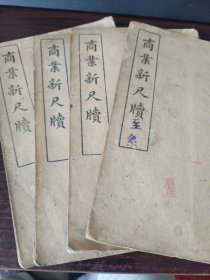 商業新尺牘
商業新尺牘
商業新尺牘
商業新尺牘